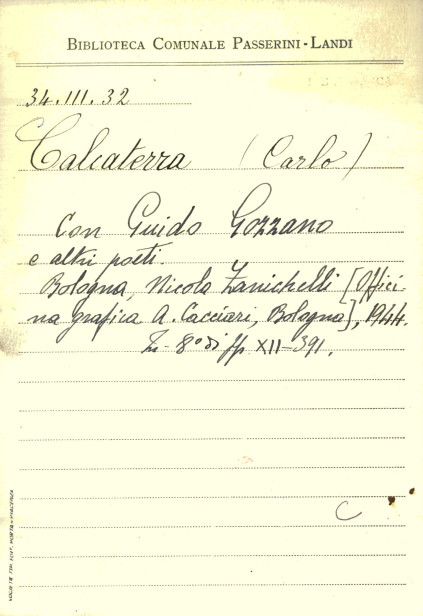 BIBLIOTECA COMUNALE PASSERINI-LANDI
34.III.32
Calcaterra (Carlo)
Con Guido Gozzano
e altri poeti.
Bologna, Nicola Zanichelli [Offici-
na grafica A. Cacciari, Bologna], 1944.
In-8° di pp XII-391.
C